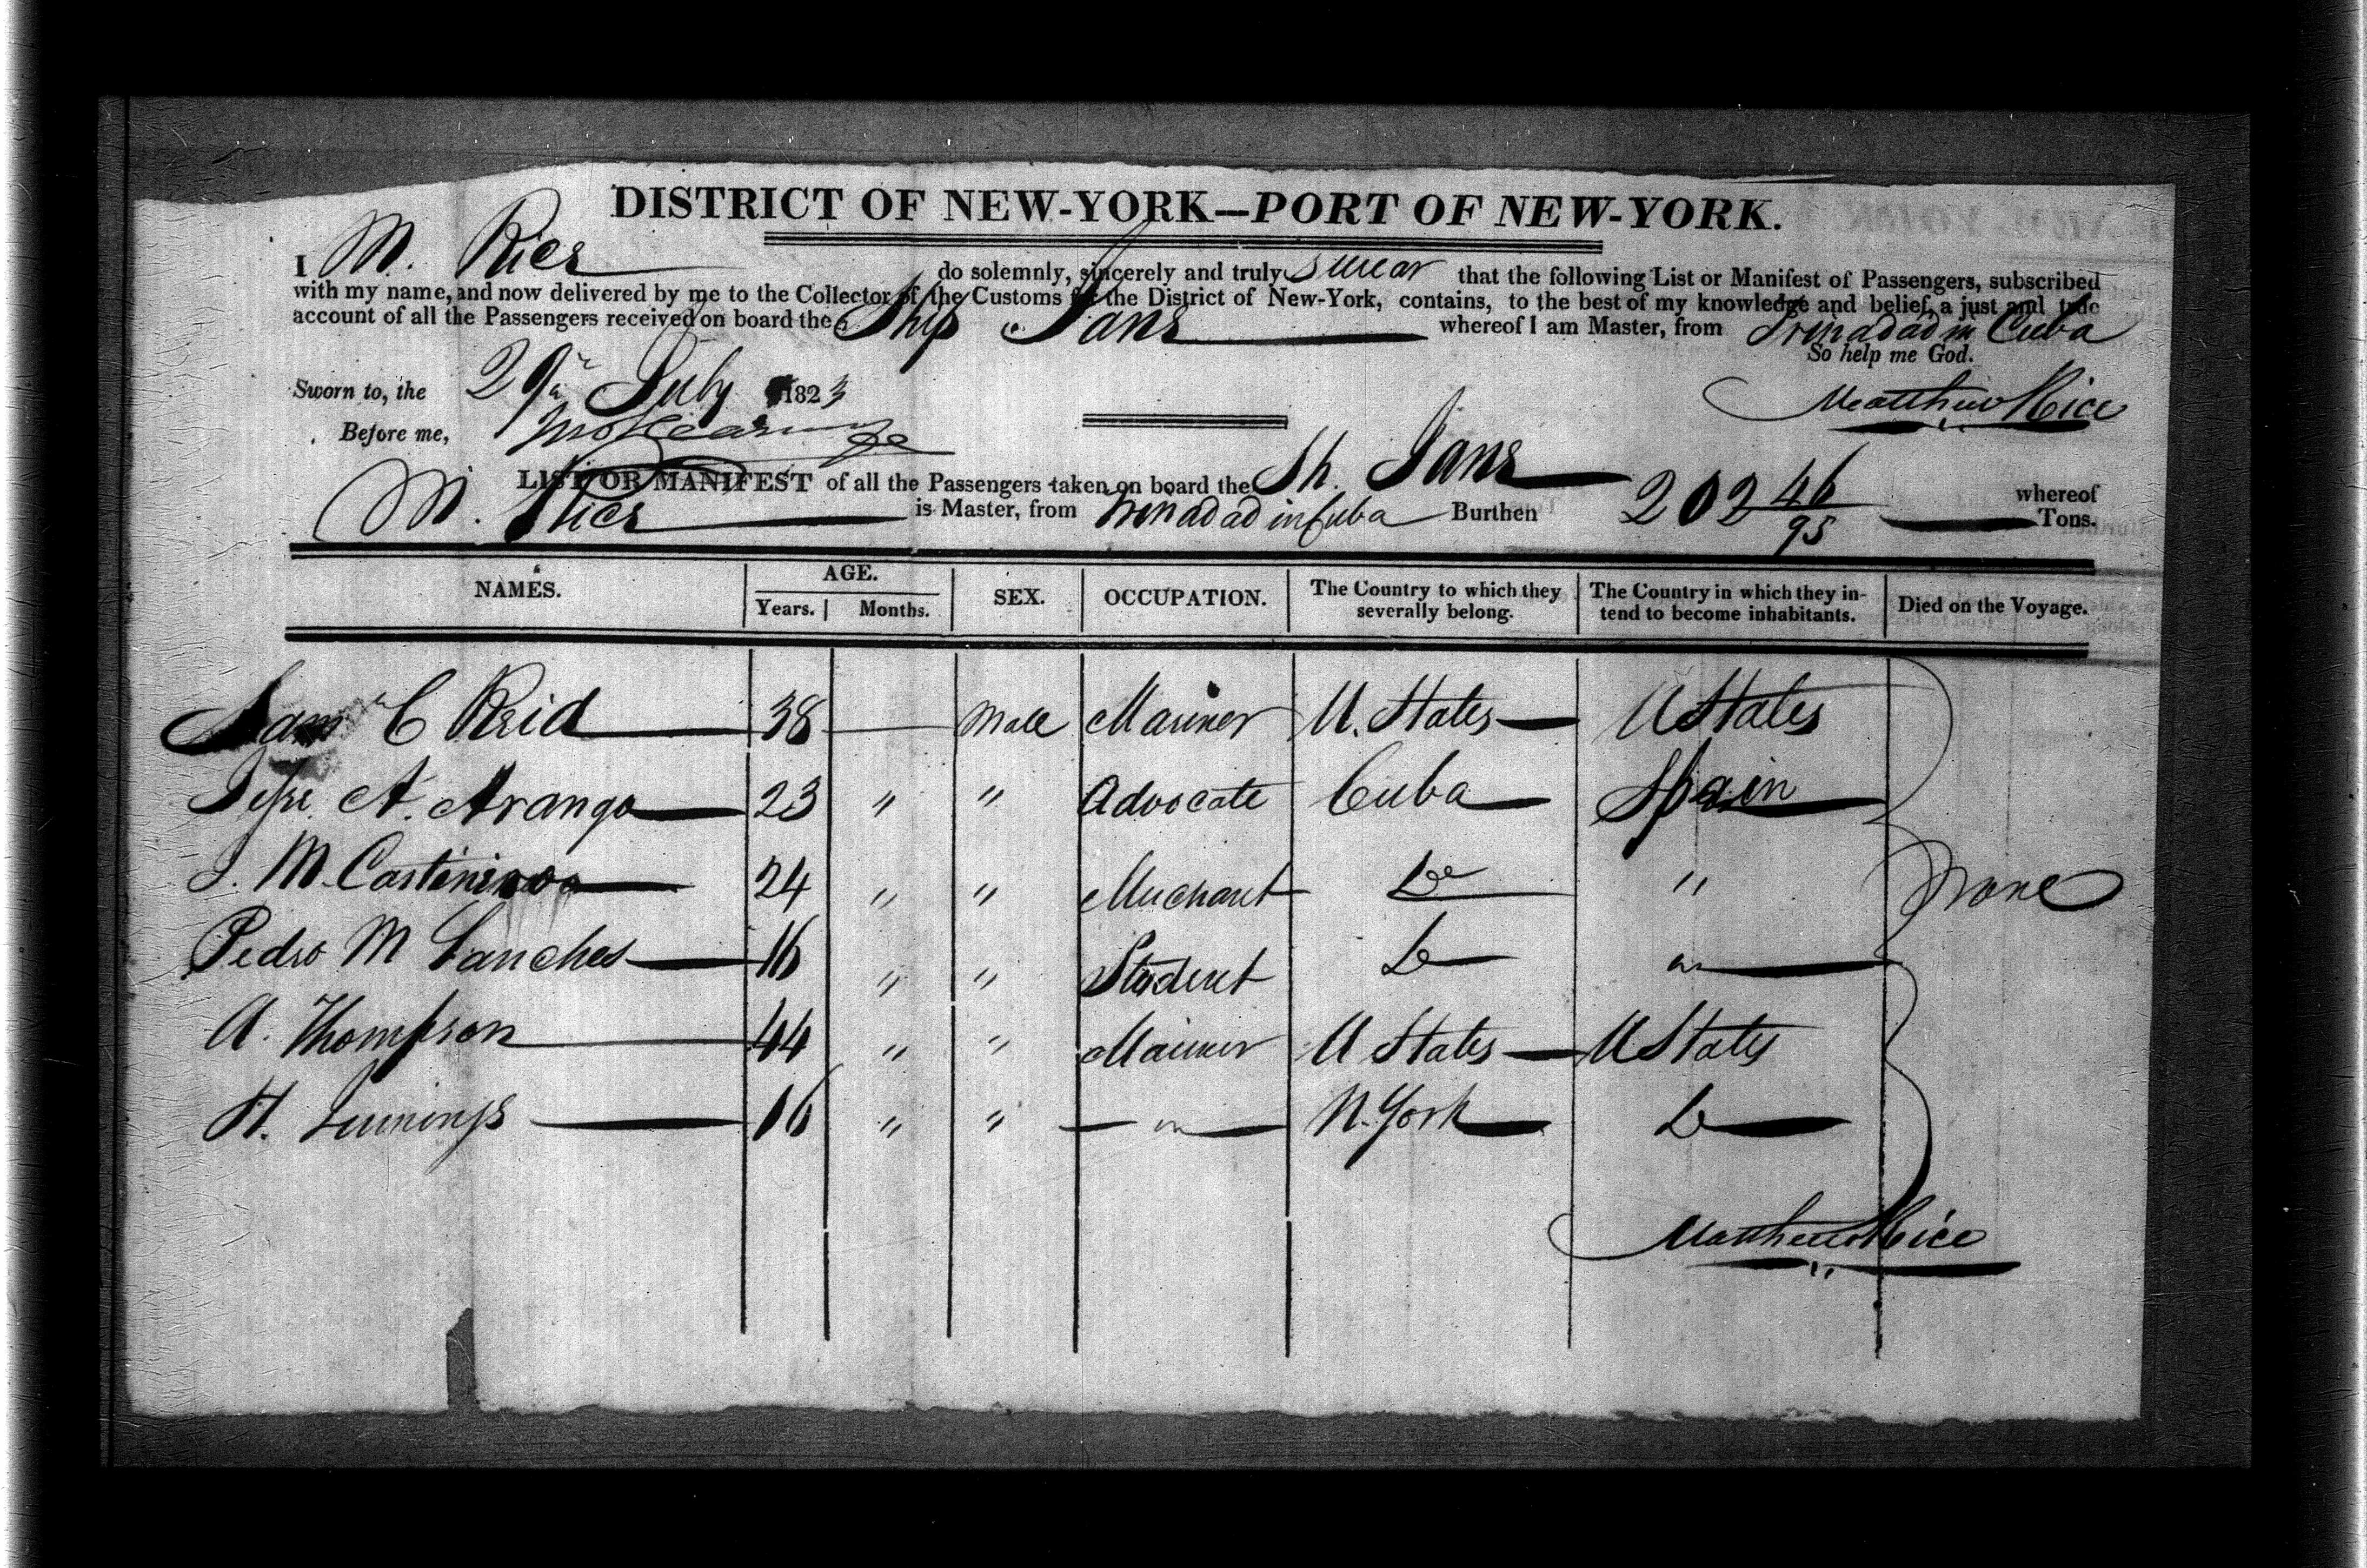 DISTRICT OF NEW-YORK—PORT OF NEW-YORK.
I M. Rice do solemnly, sincerely and truly swear that the following List or Manifest of Passengers, subscribed
with my name, and now delivered by me to the Collector of the Customs for the District of New-York, contains, to the best of my knowledge and belief, a just and true
account of all the Passengers received on board the Ship Jane whereof I am Master, from Trinadad in Cuba
So help me God.
Sworn to, the 29th July 1823
Matthew Rice
Before me,
LIST OR MANIFEST of all the Passengers taken on board the Sh. Jane whereof
M. Rice is Master, from Trinadad in Cuba Burthen 202 46/95 Tons.
NAMES. AGE. Years. Months. SEX. OCCUPATION. The Country to which they severally belong. The Country in which they intend to become inhabitants. Died on the Voyage.
Sam C Reid 38 — Male Mariner U. States U States
A. Arango 23 " " Advocate Cuba Spain
J. M. 24 " " Merchant Do " None
Pedro M Sanches 16 " " Student Do "
A. Thompson 44 " " Mariner U States U States
H. Jennings 16 " " — " — N. York Do
Matthew Rice